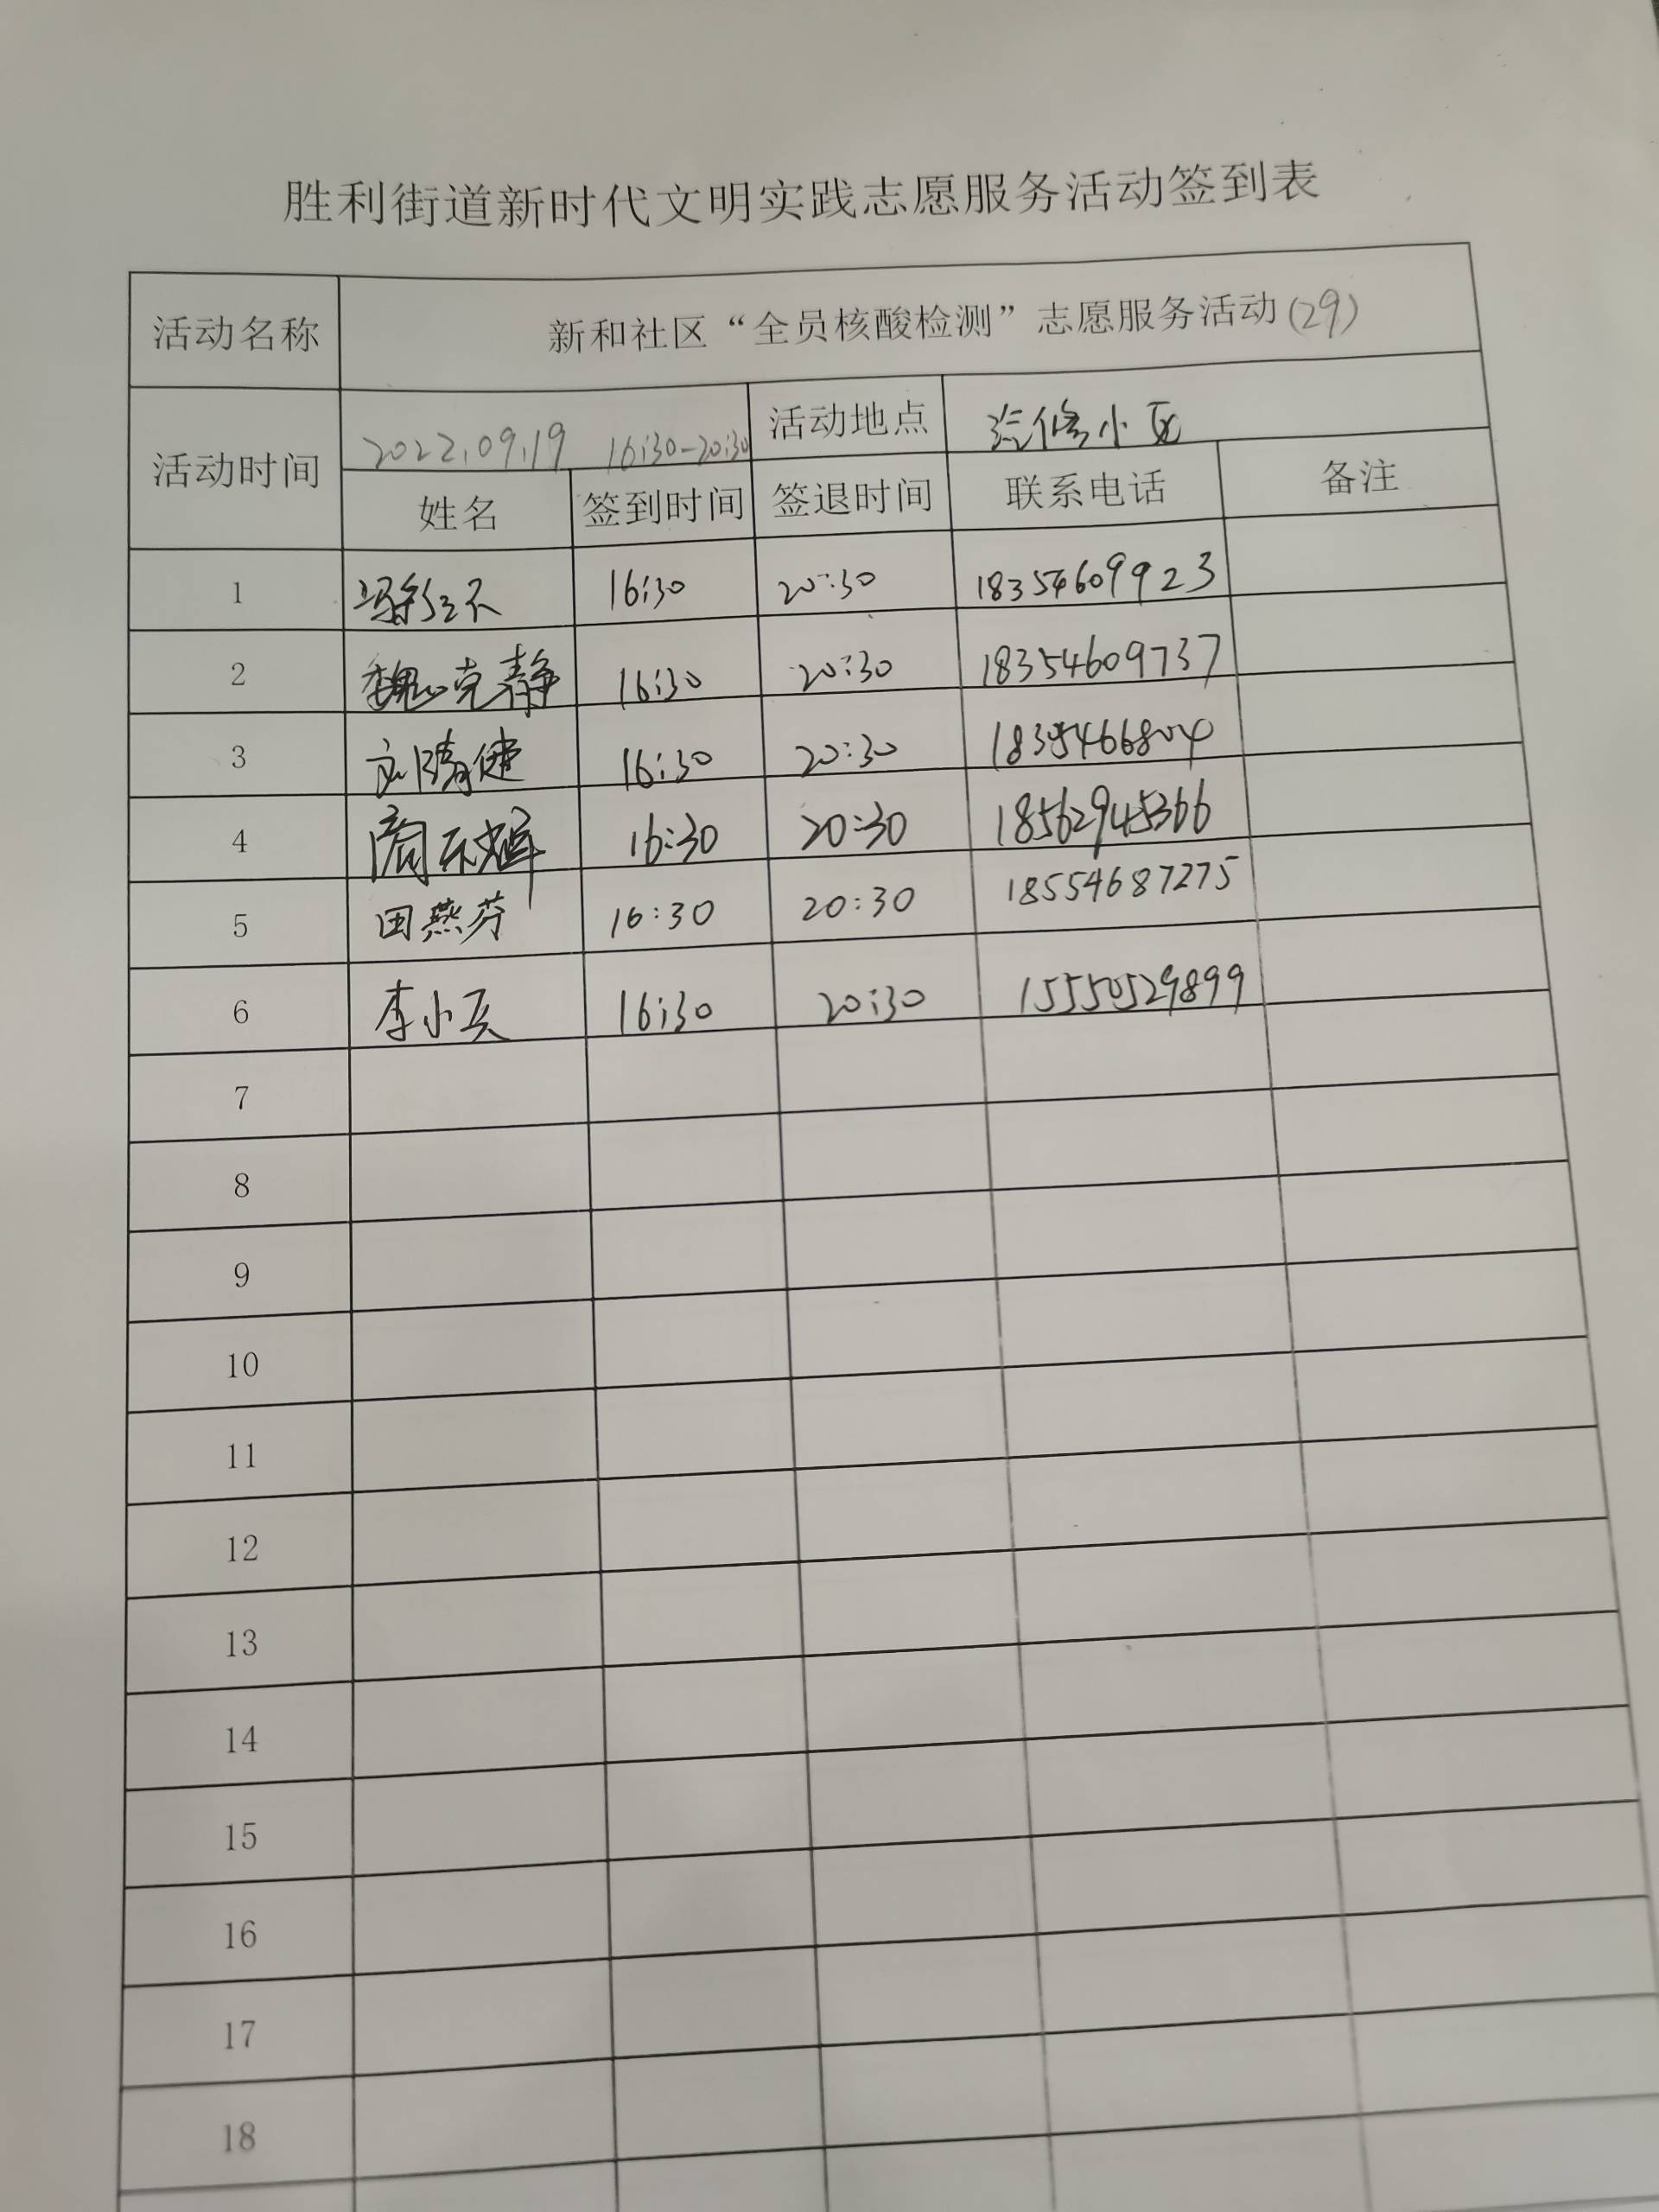 胜利街道新时代文明实践志愿服务活动签到表
活动名称 新和社区“全员核酸检测”志愿服务活动(29)
活动时间 2022.09.19 16:30-20:30 活动地点 汽修小区
姓名 签到时间 签退时间 联系电话 备注
1 16:30 20:30 18354609923
2 魏克静 16:30 20:30 18354609737
3 16:30 20:30
4 16:30 20:30 18562945366
5 田燕芬 16:30 20:30 18554687275
6 李小兵 16:30 20:30 15550529899
7
8
9
10
11
12
13
14
15
16
17
18